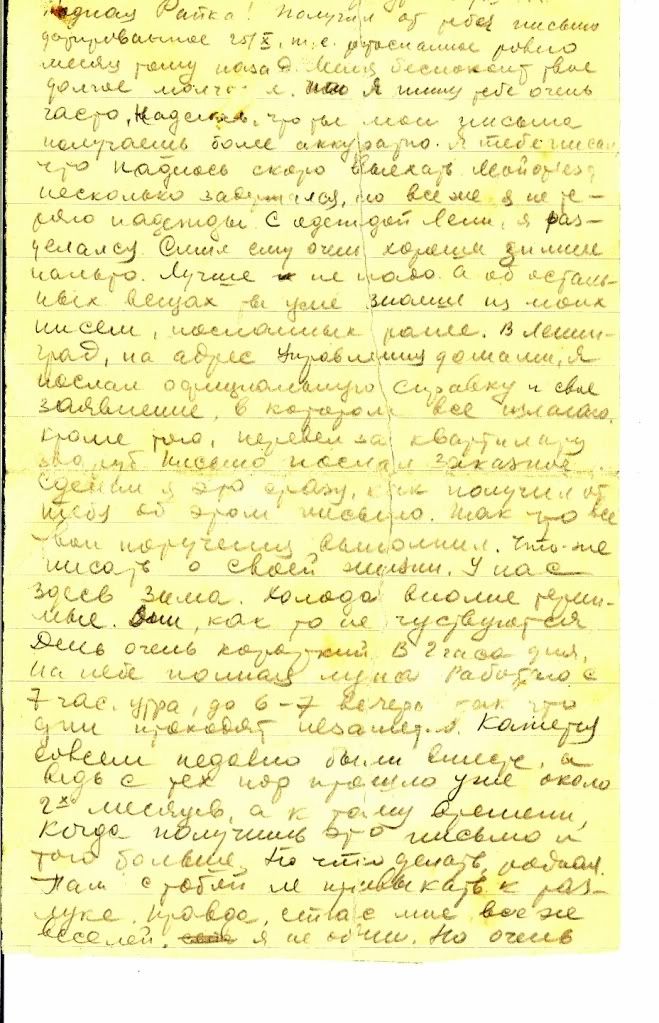 Родная Райка! Получил от тебя письмо
датированное 25/X, т.е. отосланное ровно
месяц тому назад. Меня беспокоит твое
долгое молча я. Я пишу тебе очень
часто. Надеюсь, что ты мои письма
получаешь более аккуратно. Я тебе писал,
что надеюсь скоро выехать. Мой от'езд
несколько задержался, но все же я не те-
ряю надежды. С одеждой Лени, я раз-
делался. Сшил ему очень хорошее зимнее
пальто. Лучше и не надо. А об осталь-
ных вещах ты уже знаешь из моих
писем, посланных ранее. В Ленин-
град, на адрес Управления домами, я
послал официальную справку и свое
заявление, в котором все излагаю.
Кроме того, перевел за квартиру
руб. Письмо послал заказное.
Сделал я это сразу, как получил от
тебя об этом письмо. Так что все
твои поручения выполнил. Что-же
писать о своей жизни. У нас
здесь зима. Холода вполне терпи-
мые. как то не чувствуются.
День очень короткий. В 2 часа дня,
на небе полная луна. Работаю с
7 час. утра, до 6-7 вечера так что
дни проходят незаметно. Кажется
совсем недавно были вместе, а
ведь с тех пор прошло уже около
2х месяцев, а к тому времени,
когда получишь это письмо и
того больше. Но что делать, родная.
Нам с тобой ли привыкать к раз-
луке. Правда, сейчас мне все же
веселей, я не один. Но очень